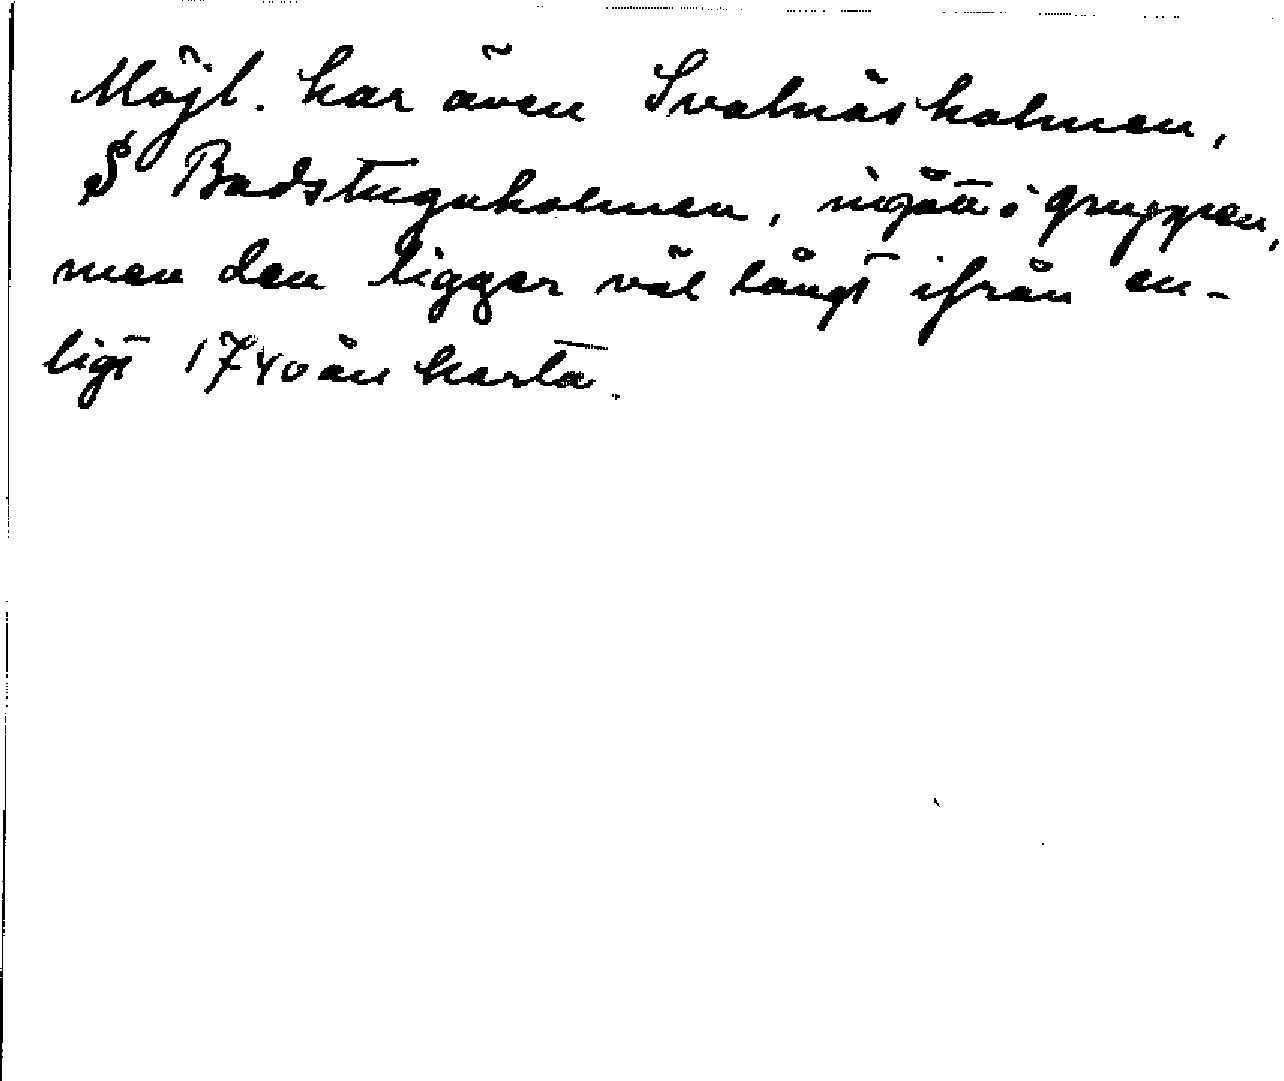 Möjl. har även Svalnäsholmen,
§ Badstuguholmen, ingått i gruppen,
men den ligger väl långt ifrån en-
ligt 1740 års karta.